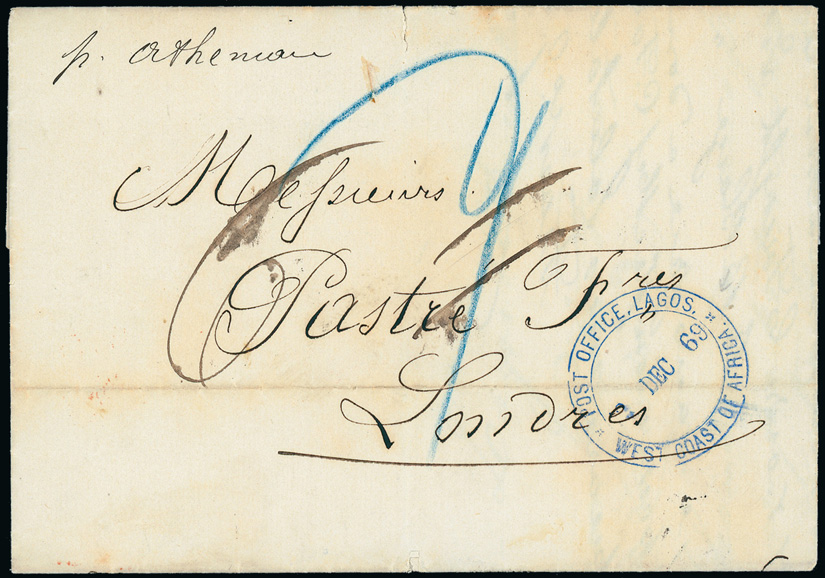 p. Athenian
Messieurs
Pastré Fres
Londres
POST OFFICE, LAGOS, WEST COAST OF AFRICA.
DEC 69